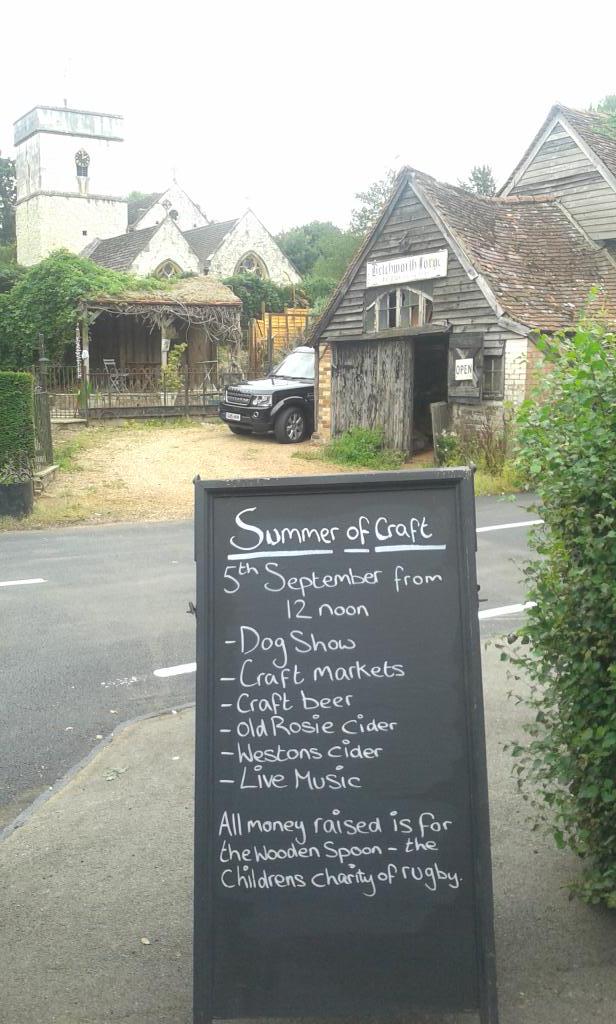 Betchworth Forge
OPEN
Summer of Craft
5th September from
12 noon
- Dog Show
- Craft markets
- Craft beer
- Old Rosie Cider
- Westons cider
- Live Music
All money raised is for
the Wooden Spoon - the
Childrens charity of rugby.